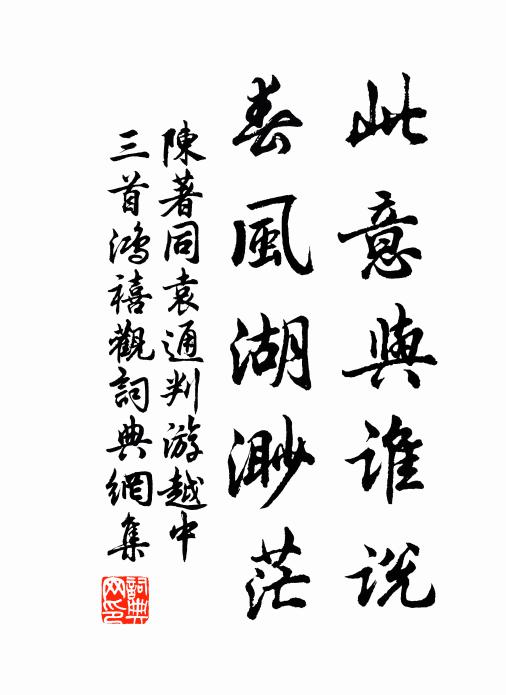 此意與誰説
春風湖渺茫
陳著同袁通判游越中
三首鴻禧觀詞典網集
詞典網印